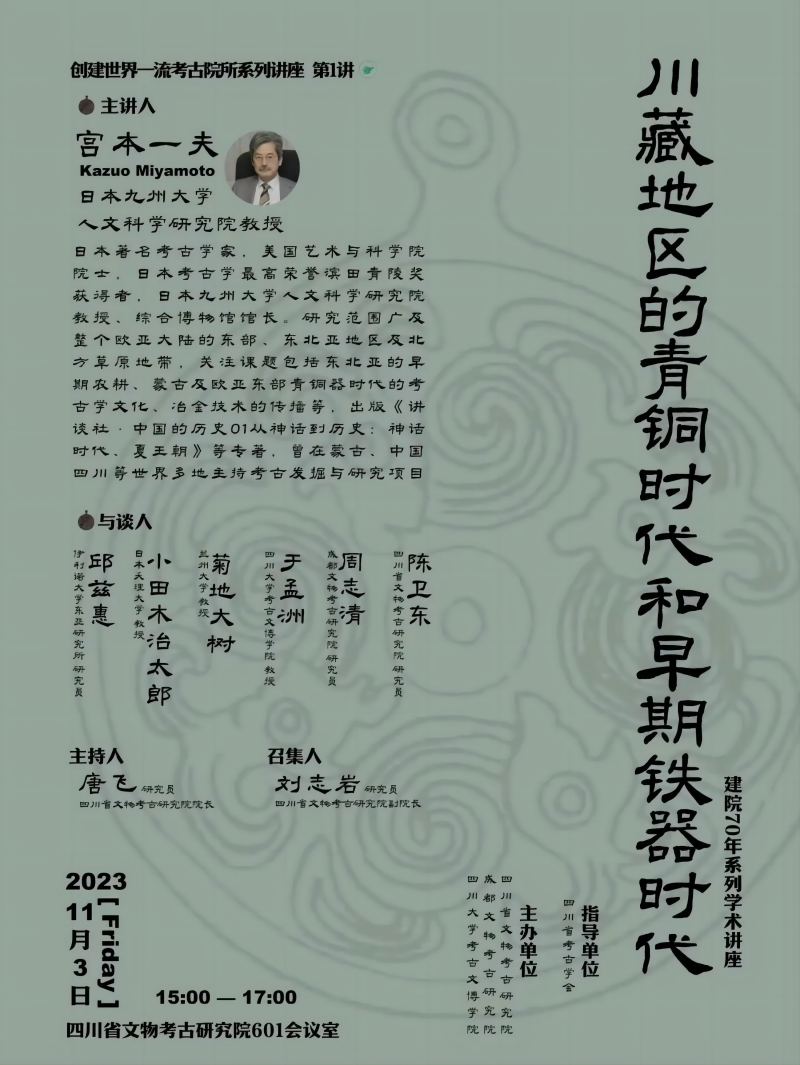 创建世界一流考古院所系列讲座 第1讲
主讲人
宫本一夫
Kazuo Miyamoto
日本九州大学
人文科学研究院教授
日本著名考古学家，美国艺术与科学院
院士，日本考古学最高荣誉滨田青陵奖
获得者，日本九州大学人文科学研究院
教授、综合博物馆馆长。研究范围广及
整个欧亚大陆的东部、东北亚地区及北
方草原地带，关注课题包括东北亚的早
期农耕、蒙古及欧亚东部青铜器时代的考
古学文化、冶金技术的传播等，出版《讲
谈社·中国的历史01从神话到历史：神话
时代、夏王朝》等专著，曾在蒙古、中国
四川等世界多地主持考古发掘与研究项目
川藏地区的青铜时代和早期铁器时代
建院70年系列学术讲座
与谈人
陈卫东
四川省文物考古研究院研究员
周志清
成都文物考古研究院研究员
于孟洲
四川大学考古文博学院教授
菊地大树
兰州大学教授
小田木治太郎
日本天理大学教授
邱兹惠
伊利诺大学东亚研究所研究员
主持人
唐飞 研究员
四川省文物考古研究院院长
召集人
刘志岩 研究员
四川省文物考古研究院副院长
指导单位
四川省考古学会
主办单位
四川省文物考古研究院
成都文物考古研究院
四川大学考古文博学院
2023
11
月
3
日
[ Friday ]
15:00 — 17:00
四川省文物考古研究院601会议室